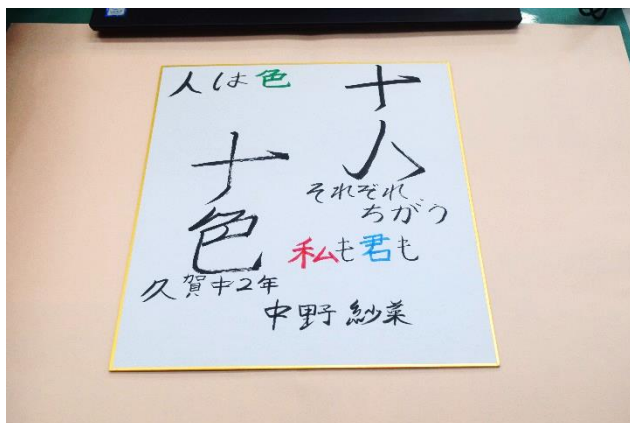 十人
十色
人は色
それぞれ
ちがう
私も君も
久賀中2年
中野紗菜